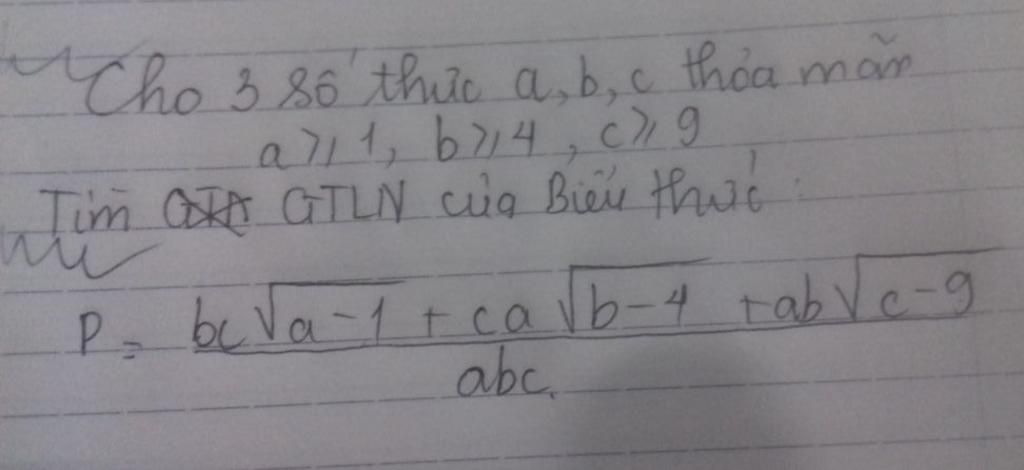 Cho 3 số thực a, b, c thỏa mãn
a ≥ 1, b ≥ 4, c ≥ 9
Tìm GTLN của Biểu thức :
P = bc√(a-1) + ca√(b-4) + ab√(c-9)
abc.